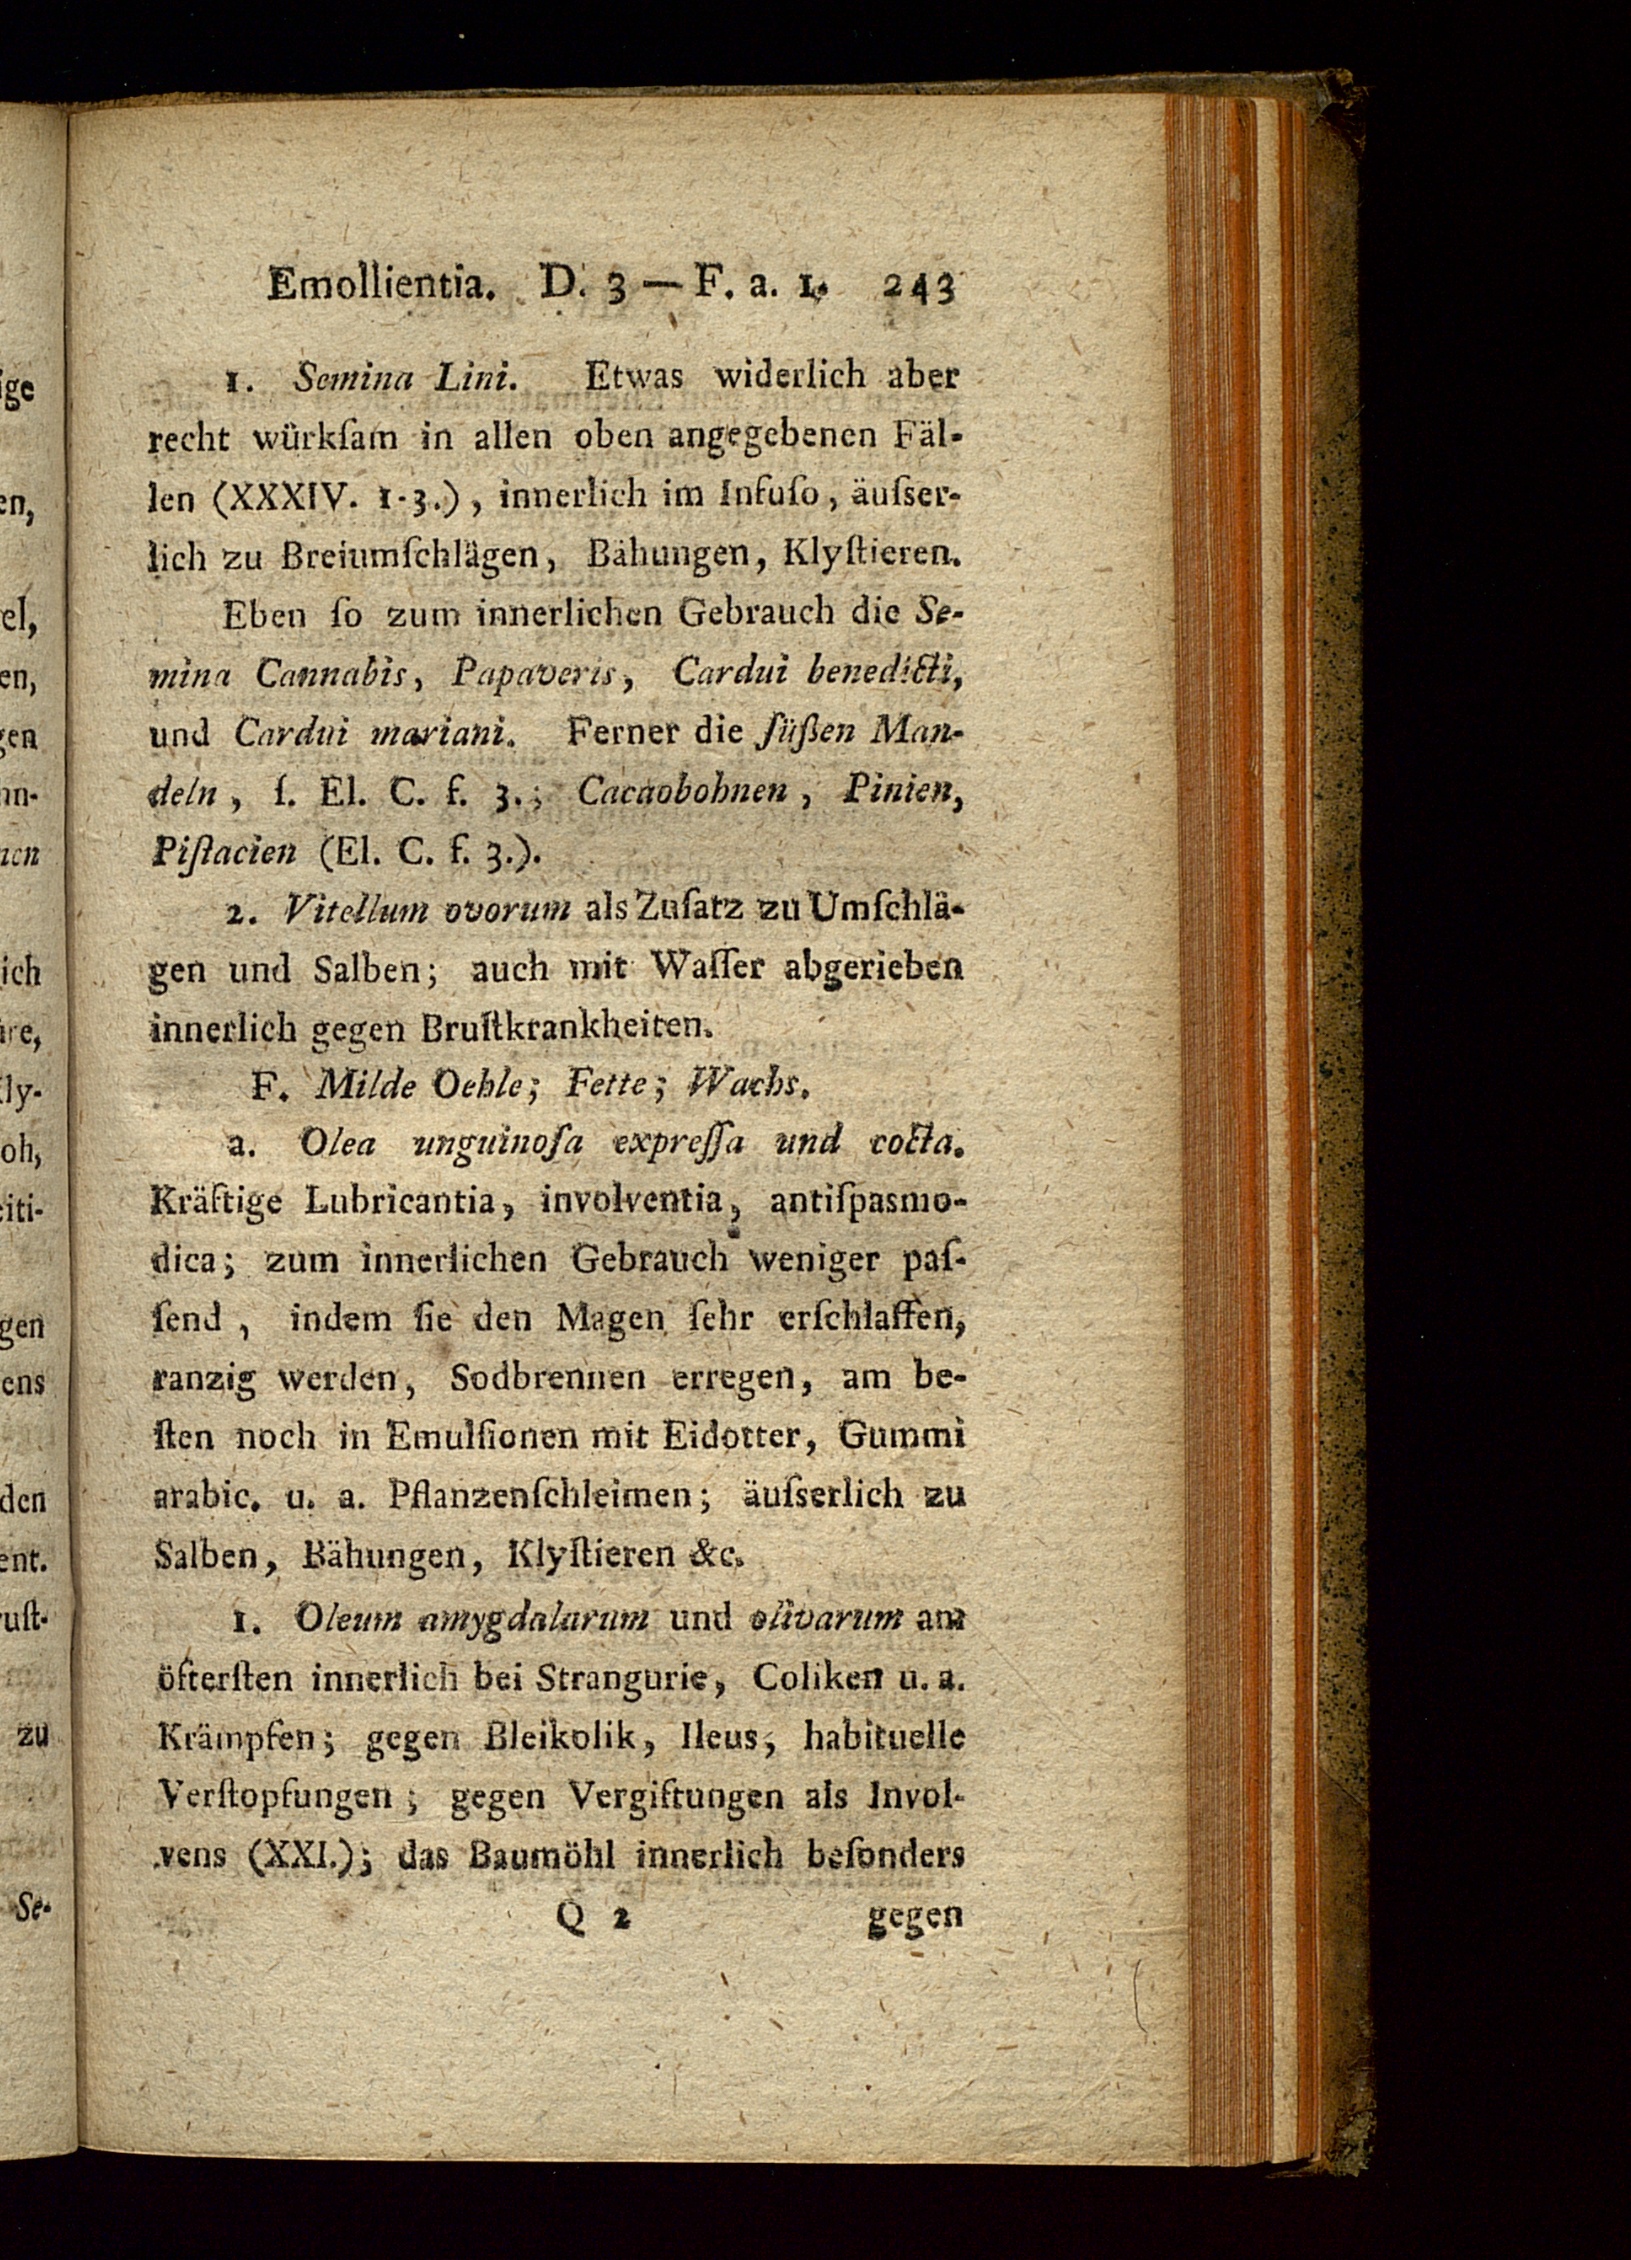 Emollientia. D. 3 — F. a. 1. 243
1. Semina Lini. Etwas widerlich aber
recht würkſam in allen oben angegebenen Fäl-
len (XXXIV. 1-3.), innerlich im Infuſo, äuſser-
lich zu Breiumſchlägen, Bähungen, Klyſtieren.
Eben ſo zum innerlichen Gebrauch die Se-
mina Cannabis, Papaveris, Cardui benedicti,
und Cardui mariani. Ferner die ſüßen Man-
deln, ſ. El. C. f. 3.; Cacaobohnen, Pinien,
Piſtacien (El. C. f. 3.).
2. Vitellum ovorum als Zuſatz zu Umſchlä-
gen und Salben; auch mit Waſſer abgerieben
innerlich gegen Bruſtkrankheiten.
F. Milde Oehle; Fette; Wachs.
a. Olea unguinoſa expreſſa und cocta.
Kräftige Lubricantia, involventia, antiſpasmo-
dica; zum innerlichen Gebrauch weniger paſ-
ſend, indem ſie den Magen ſehr erſchlaffen,
ranzig werden, Sodbrennen erregen, am be-
ſten noch in Emulſionen mit Eidotter, Gummi
arabic. u. a. Pflanzenſchleimen; äuſserlich zu
Salben, Bähungen, Klyſtieren &c.
1. Oleum amygdalarum und olivarum am
öfterſten innerlich bei Strangurie, Coliken u. a.
Krämpfen; gegen Bleikolik, Ileus, habituelle
Verſtopfungen; gegen Vergiftungen als Invol-
vens (XXI.); das Baumöhl innerlich beſonders
Q 2 gegen